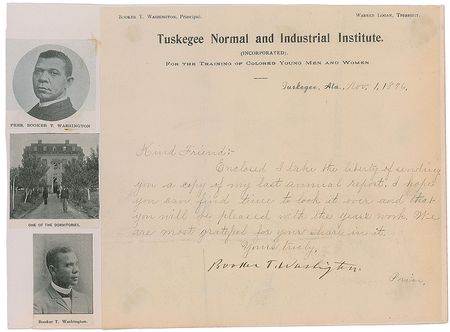 Booker T. Washington, Principal.
Warren Logan, Treasurer.
Tuskegee Normal and Industrial Institute.
(INCORPORATED).
For the Training of Colored Young Men and Women
Tuskegee, Ala., Nov. 1, 1896.
Kind Friend:-
Enclosed I take the liberty of sending
you a copy of my last annual report. I hope
you can find time to look it over and that
you will be pleased with the years work. We
are most grateful for your share in it.
Yours truly,
Booker T. Washington.
Prin.
PRES. BOOKER T. WASHINGTON
ONE OF THE DORMITORIES.
Booker T. Washington.